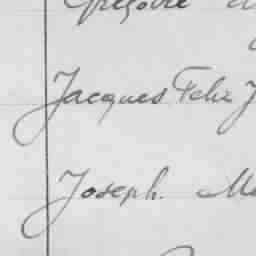 Grégoire
Jacques Felix J
Joseph. Ma